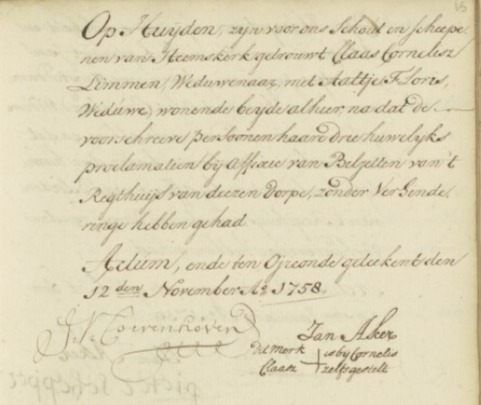 15
Op Huijden, zijn voor ons Schout en scheepe-
nen van Heemskerk getrouwt Claas Cornelisz
Limmen, Weduwenaar, met Aaltje Floris,
Weduwe, wonende beyde alhier, na dat de
voorschreeve persoonen haare drie huwelyks
proclamatien bij affixie van Beljetten van 't
Regthuijs van deezen dorpe, zonder verhinde-
ringe hebben gehad
Actum, ende ten Oirconde geteekent den
12 den November Ao 1758.
Coevenhoven
Jan Aker
Dit merk is by Cornelis
Claasz zelfs gestelt